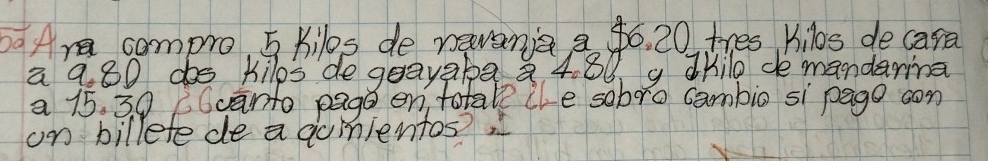 5a Ara compro 5 Kilos de naranja a $6.20 tres Kilos de caña
a 9.80 dos Kilos de guayaba a 4.80 y 1Kilo de mandarina
a 15.30 ¿Cuánto pago en total? ¿Le sobro cambio si pago con
un billete de a quinientos?